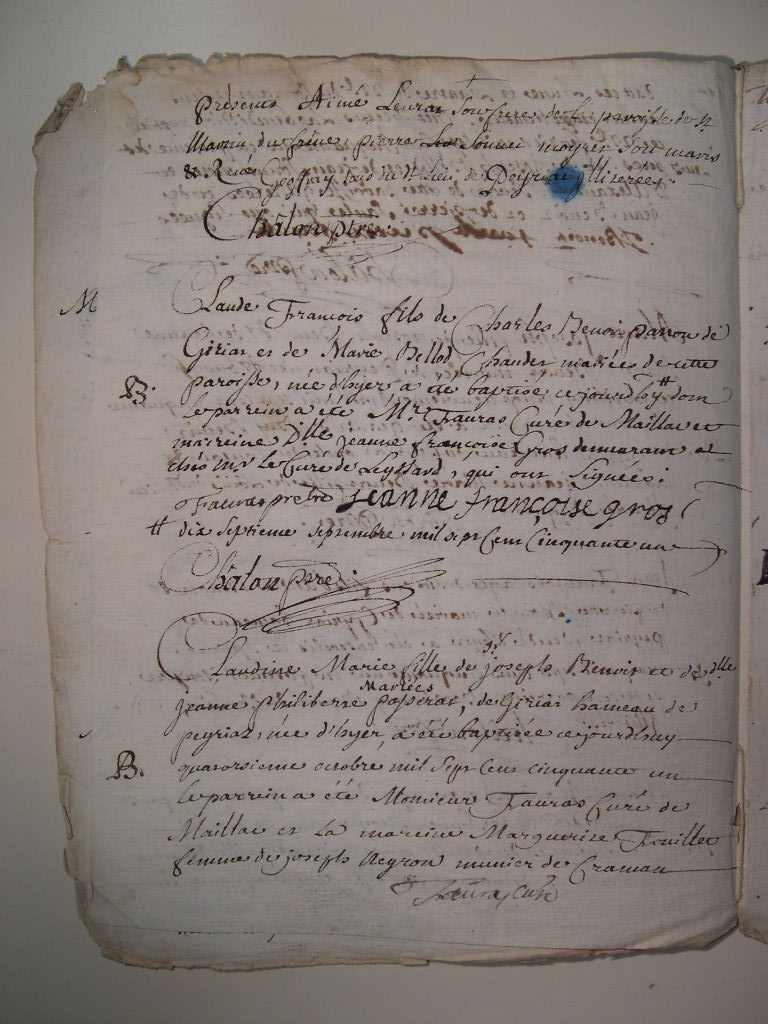 présents Aimé Levrat son frere de la paroisse de St
Martin du frêne, pierre moyret son mari
& René Geoffray tous de Peyriat illiterés.
Châlon ptre.
M
Claude Francois fils de Charles Benoit patron de
Giriat et de Marie Bellod Chander mariées de cette
B. paroisse, née d'hyer a été baptisé ce jourdhy # dont
le parrein a été Mr. Tauras Curé de Maillac et
marreine Dlle jeanne françoise Gros demeurant
chés mr le Curé de Leyssard, qui ont signées.
Tauras pretre jeanne françoise gros
# dix septieme septembre mil sept Cent Cinquante un
Châlon ptre.
Claudine Marie fille de sr joseph Benoit et de dlle
jeanne philiberte passerat, Mariées de Giriat hameau de
peyriat, née d'hyer, a été baptisée ce jourdhuy
B. quatorsieme octobre mil Sept Cent cinquante un
le parrein a été Monsieur Tauras Curé de
Maillac et La mareine Marguerite Touillet
femme de joseph Neyron munier de Craman
Tauras, Curé